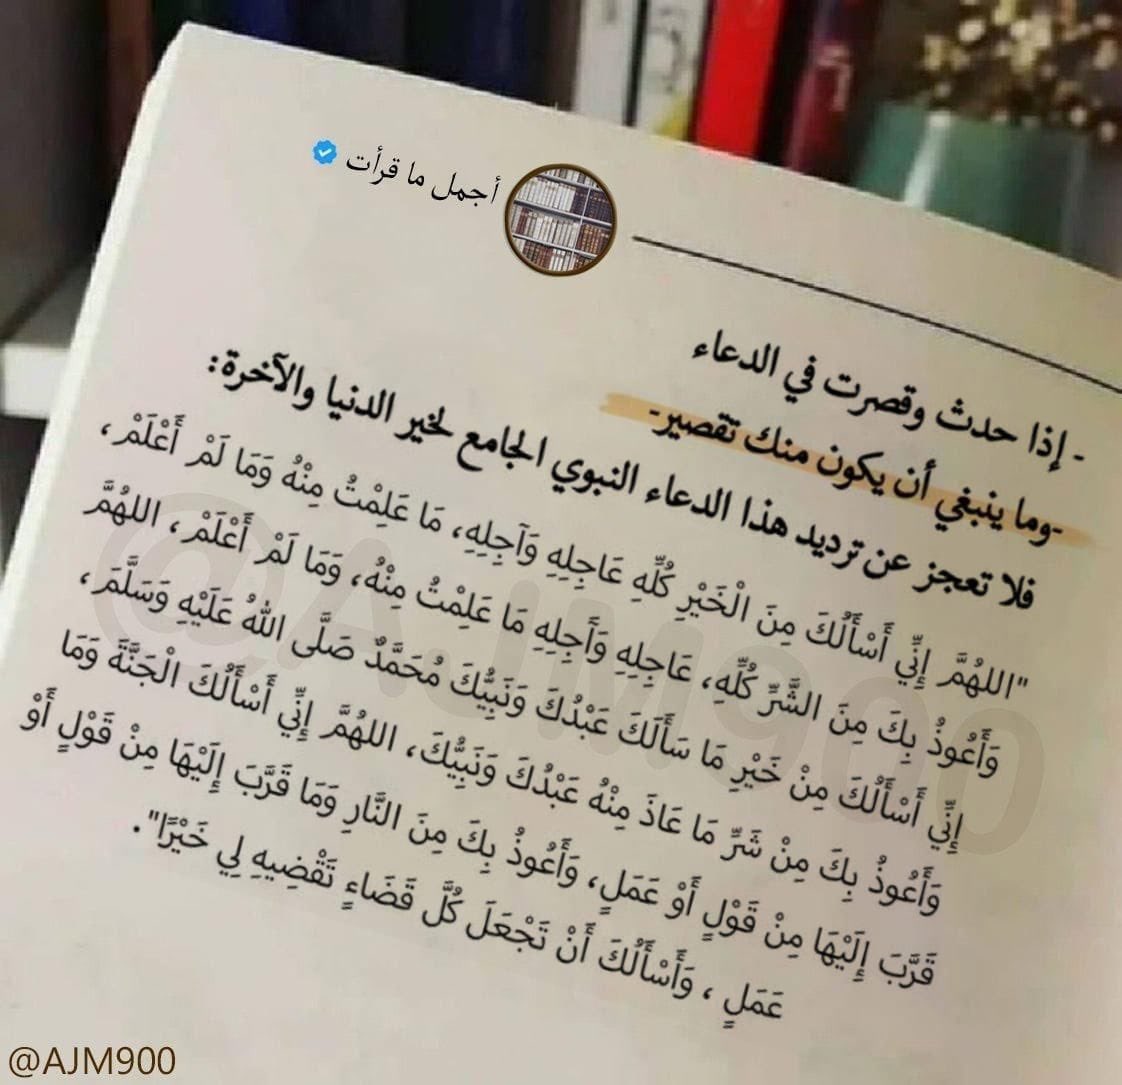 أجمل ما قرأت
- إذا حدث وقصرت في الدعاء
-وما ينبغي أن يكون منك تقصير-
فلا تعجز عن ترديد هذا الدعاء النبوي الجامع لخير الدنيا والآخرة:
"اللهُمَّ إِنِّي أَسْأَلُكَ مِنَ الْخَيْرِ كُلِّهِ عَاجِلِهِ وَآجِلِهِ، مَا عَلِمْتُ مِنْهُ وَمَا لَمْ أَعْلَمْ،
وَأَعُوذُ بِكَ مِنَ الشَّرِّ كُلِّهِ، عَاجِلِهِ وَآجِلِهِ مَا عَلِمْتُ مِنْهُ، وَمَا لَمْ أَعْلَمْ، اللهُمَّ
إِنِّي أَسْأَلُكَ مِنْ خَيْرِ مَا سَأَلَكَ عَبْدُكَ وَنَبِيُّكَ مُحَمَّدٌ صَلَّى اللهُ عَلَيْهِ وَسَلَّمَ،
وَأَعُوذُ بِكَ مِنْ شَرِّ مَا عَاذَ مِنْهُ عَبْدُكَ وَنَبِيُّكَ، اللهُمَّ إِنِّي أَسْأَلُكَ الْجَنَّةَ وَمَا
قَرَّبَ إِلَيْهَا مِنْ قَوْلٍ أَوْ عَمَلٍ، وَأَعُوذُ بِكَ مِنَ النَّارِ وَمَا قَرَّبَ إِلَيْهَا مِنْ قَوْلٍ أَوْ
عَمَلٍ ، وَأَسْأَلُكَ أَنْ تَجْعَلَ كُلَّ قَضَاءٍ تَقْضِيهِ لِي خَيْرًا".
@AJM900
@AJM900